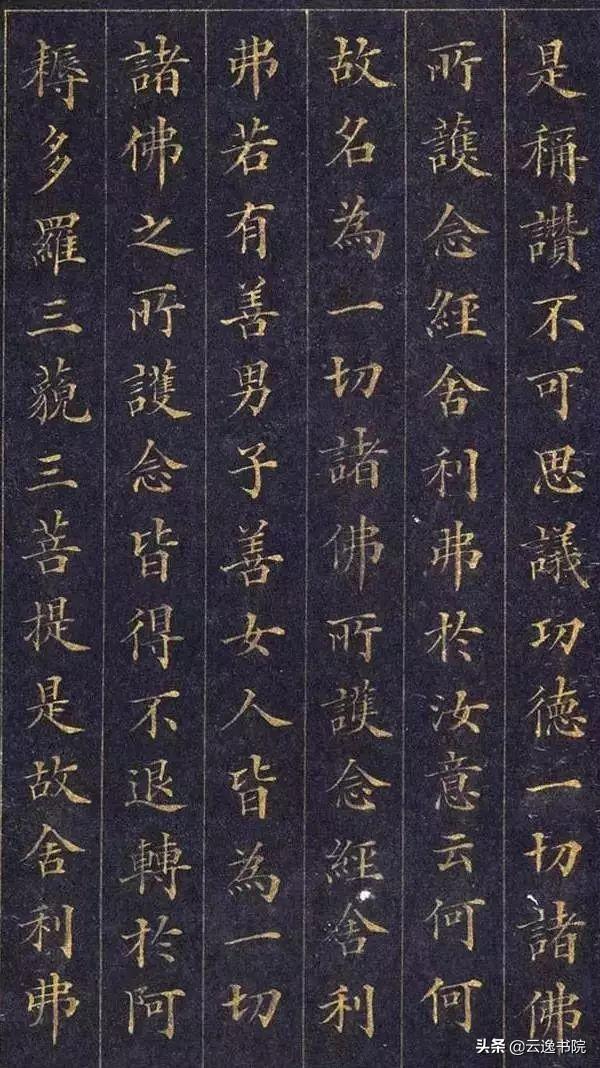 是稱讚不可思議功德一切諸佛
所護念經舍利弗於汝意云何何
故名為一切諸佛所護念經舍利
弗若有善男子善女人皆為一切
諸佛之所護念皆得不退轉於阿
耨多羅三藐三菩提是故舍利弗
头条 @云逸书院